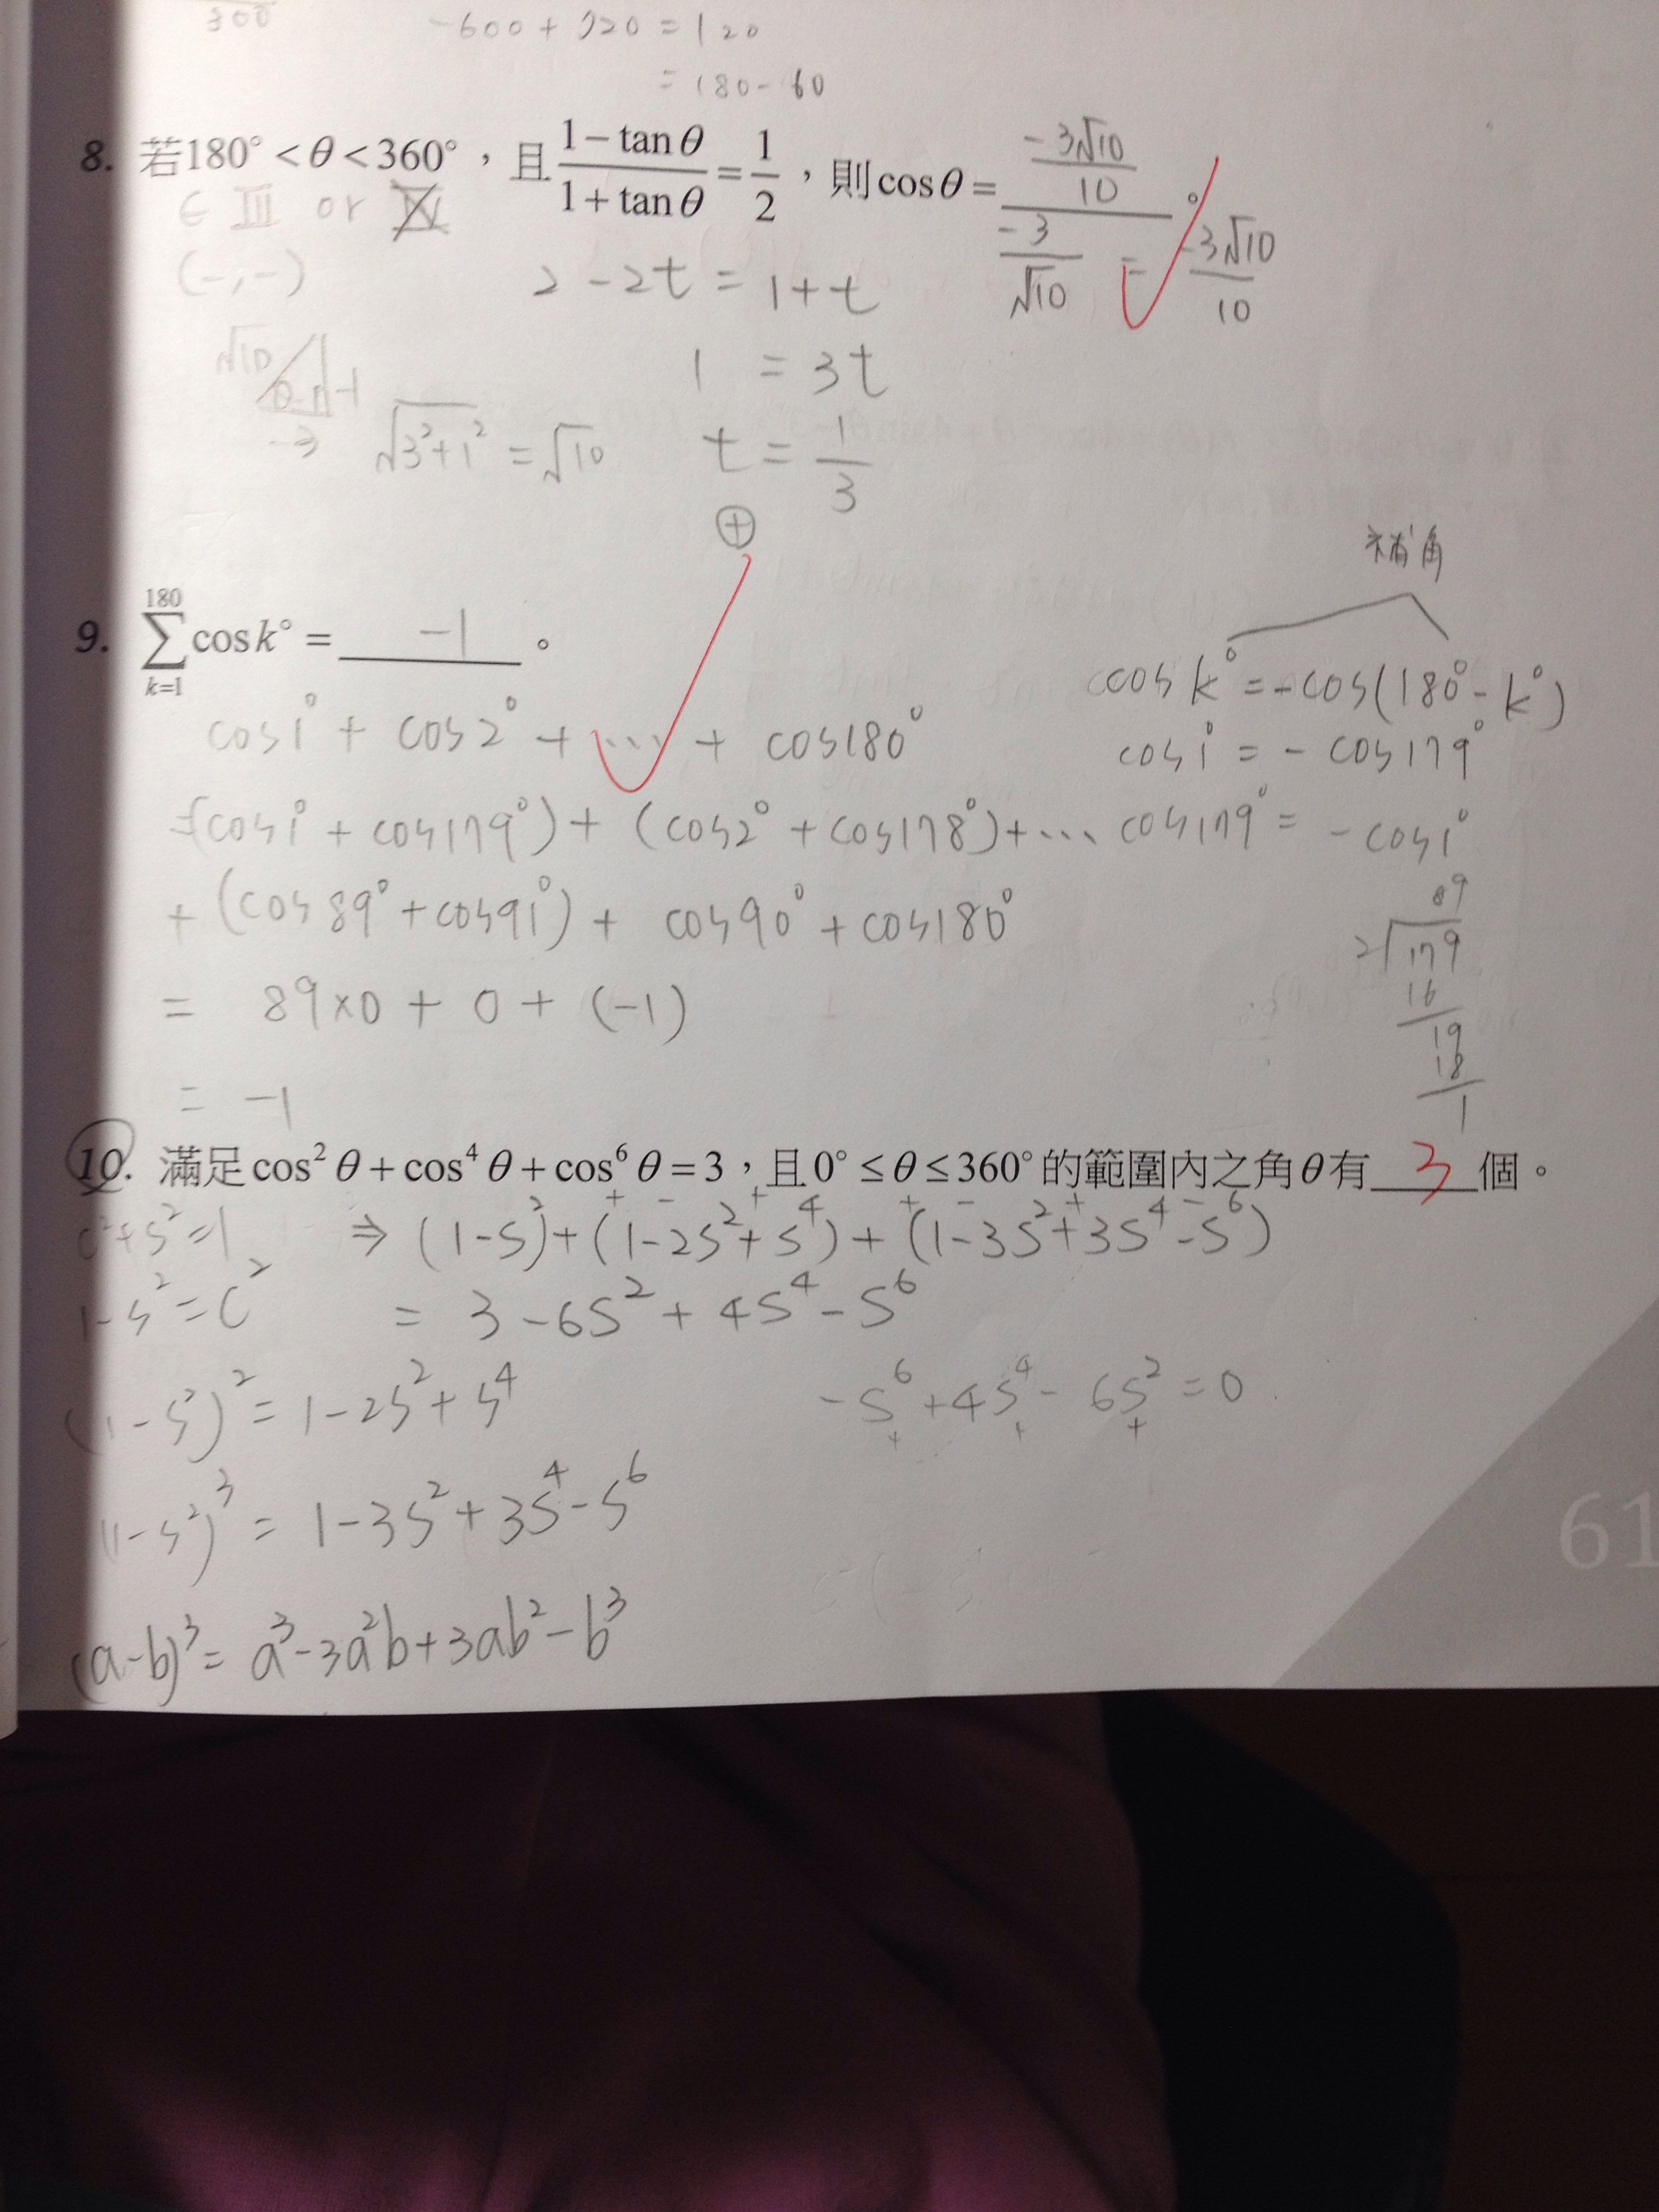 300 -600 + 720 = 120
= 180 - 60
8. 若180° < θ < 360°,且 (1 - tanθ)/(1 + tanθ) = 1/2,則cosθ = -3√10/10 。
∈ III or IV
-3/√10 = -3√10/10
(-,-) 2 - 2t = 1 + t
1 = 3t
√10 θ -1
-3 √(3²+1²) = √10 t = 1/3
⊕
補角
9. ∑_{k=1}^{180} cos k° = -1 。
cos k° = -cos(180° - k°)
cos1° + cos2° + ... + cos180°
cos1° = - cos179°
=(cos1° + cos179°) + (cos2° + cos178°) + ...
cos179° = - cos1°
+ (cos89° + cos91°) + cos90° + cos180°
89
2 179
16
19
18
1
= 89×0 + 0 + (-1)
= -1
10. 滿足cos²θ + cos⁴θ + cos⁶θ = 3,且0° ≤ θ ≤ 360°的範圍內之角θ有 3 個。
+ - + + - + -
c² + s² = 1 ⇒ (1-s²) + (1-2s²+s⁴) + (1-3s²+3s⁴-s⁶)
1-s² = c² = 3 - 6s² + 4s⁴ - s⁶
(1-s²)² = 1-2s²+s⁴ -s⁶ + 4s⁴ - 6s² = 0
+ + +
(1-s²)³ = 1-3s²+3s⁴-s⁶
(a-b)³ = a³-3a²b+3ab²-b³
61